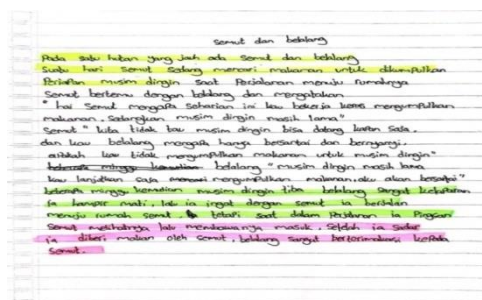 Semut dan belalang
Pada satu hutan yang jauh ada semut dan belalang
Suatu hari Semut Sedang mencari makanan untuk dikumpulkan
Persiapan musim dingin saat Perjalanan menuju rumahnya
Semut bertemu dengan belalang dan mengatakan
" hai Semut mengapa seharian ini kau bekerja keras mengumpulkan
makanan. Sedangkan musim dingin masih lama"
Semut " kita tidak tau musim dingin bisa datang kapan saja.
dan kau belalang mengapa hanya bersantai dan bernyanyi.
kau tidak mengumpulkan makanan untuk musim dingin"
beberapa minggu kemudian belalang "musim dingin masih lama
kau lanjutkan saja mengumpulkan makanan, aku akan bersantai"
beberapa minggu kemudian musim dingin tiba belalang sangat kelaparan
ia hampir mati, lalu ia ingat dengan semut ia berjalan
menuju rumah semut. tetapi saat dalam Perjalanan ia Pingsan
Semut melihatnya lalu membawanya masuk, setelah ia Sadar
ia diberi makan oleh Semut, belalang sangat berterimakasi kepada
Semut.